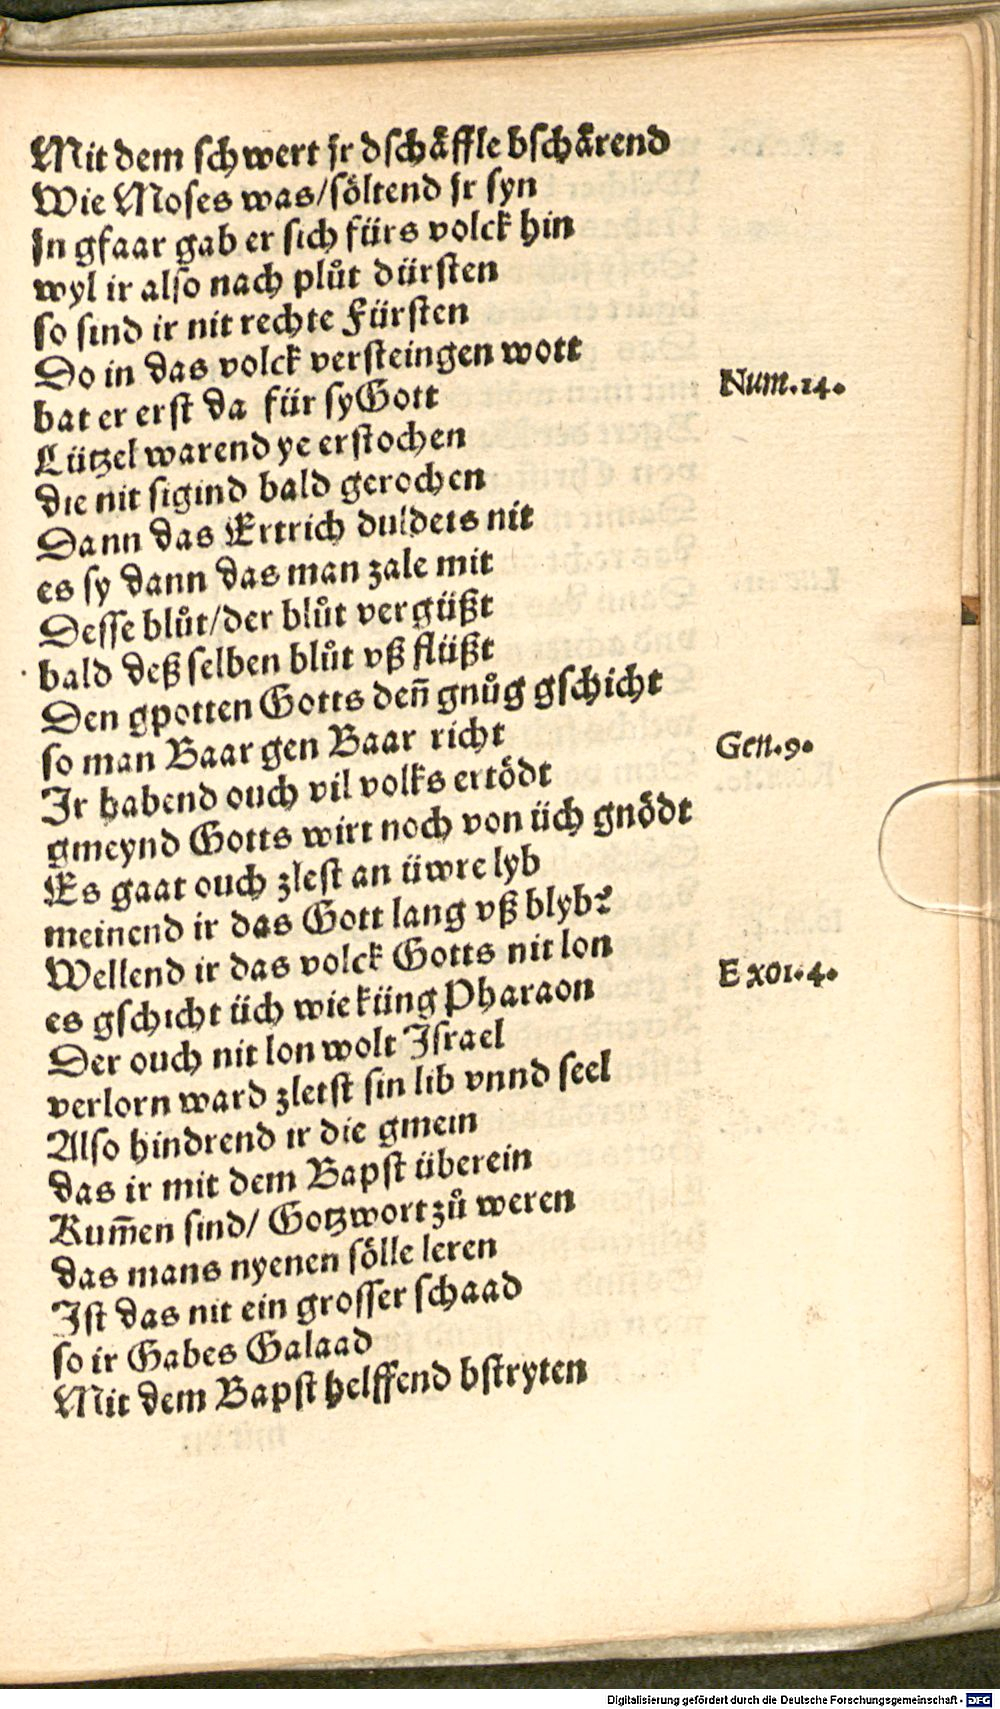 Mit dem schwert jr dschäffle bschärend
Wie Moses was/söltend jr syn
jn gfaar gab er sich fürs volck hin
wyl ir also nach plůt dürsten
so sind ir nit rechte Fürsten
Do in das volck versteingen wott
bat er erst da für sy Gott
Num.14.
Lützel warend ye erstochen
die nit sigind bald gerochen
Dann das Ertrich duldets nit
es sy dann das man zale mit
Desse blůt/der blůt vergüßt
bald deß selben blůt vß flüßt
Den gpotten Gotts deñ gnůg gschicht
so man Baar gen Baar richt
Gen.9.
Ir habend ouch vil volks ertödt
gmeynd Gotts wirt noch von üch gnödt
Es gaat ouch zlest an üwre lyb
meinend ir das Gott lang vß blyb?
Wellend ir das volck Gotts nit lon
es gschicht üch wie küng Pharaon
Exoi.4.
Der ouch nit lon wolt Israel
verlorn ward zletst sin lib vnnd seel
Also hindrend ir die gmein
das ir mit dem Bapst überein
Kum̃en sind/ Gotzwort zů weren
das mans nyenen sölle leren
Ist das nit ein grosser schaad
so ir Gabes Galaad
Mit dem Bapst helffend bstryten
Digitalisierung gefördert durch die Deutsche Forschungsgemeinschaft - DFG